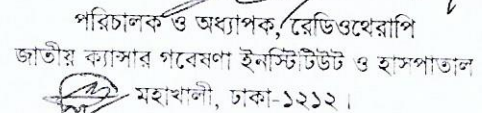 পরিচালক ও অধ্যাপক, রেডিওথেরাপি
জাতীয় ক্যান্সার গবেষণা ইনস্টিটিউট ও হাসপাতাল
মহাখালী, ঢাকা-১২১২।